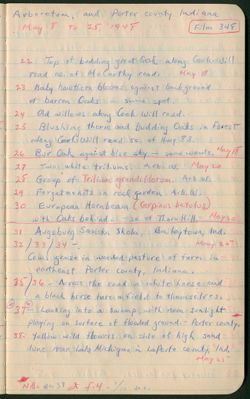 Arboretum, and Porter County Indiana
May 8 to 25 1948
Film 348
22 Top of budding great Oak along Cook's Hill
road so. of McCarthy road. May 18
23 Baby hawthorn blooms against background
of barren Oaks same spot.
24 Old willows along Cook Hill road.
25 Blushing thorns and budding Oaks in Forest
along Cook's Hill road so. of
26 Bur Oak against blue sky May 18
27 Two white trilliums, Arb. May 20
25 Group of Trillium grandiflorum. Arb. W.
29 Forgetmenots in rock garden Arb. W.
30 European Hornbeam (Carpinus betulus)
with Oaks behind so of Thornhill. May 20
31 Augsburg Sanskri Skola, Burlington, Ind.
32/33/34 - May 20
Cows graze in wooded pasture of farm in
northeast Porter County, Indiana.
35/36 - Across the road a white horse and
a black horse have a field to themselves.
37 Looking into a swamp with warm sunlight
playing on surface of flooded ground. Porter County.
38 Yellow wild flowers on side of high sand
dune near Lake Michigan in LaPorte County, Ind.
May 25
NB: on 37 f.4